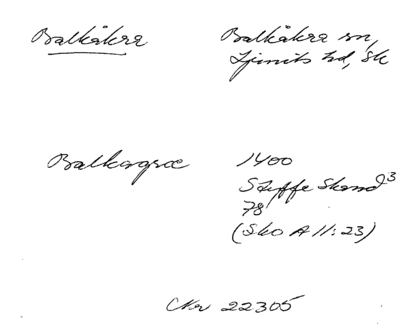 Balkåkra Balkåkra sn,
Ljunits hd, Sk
Balkagræ 1400
Styffe Skand³
78
(Sko A II:23)
22305